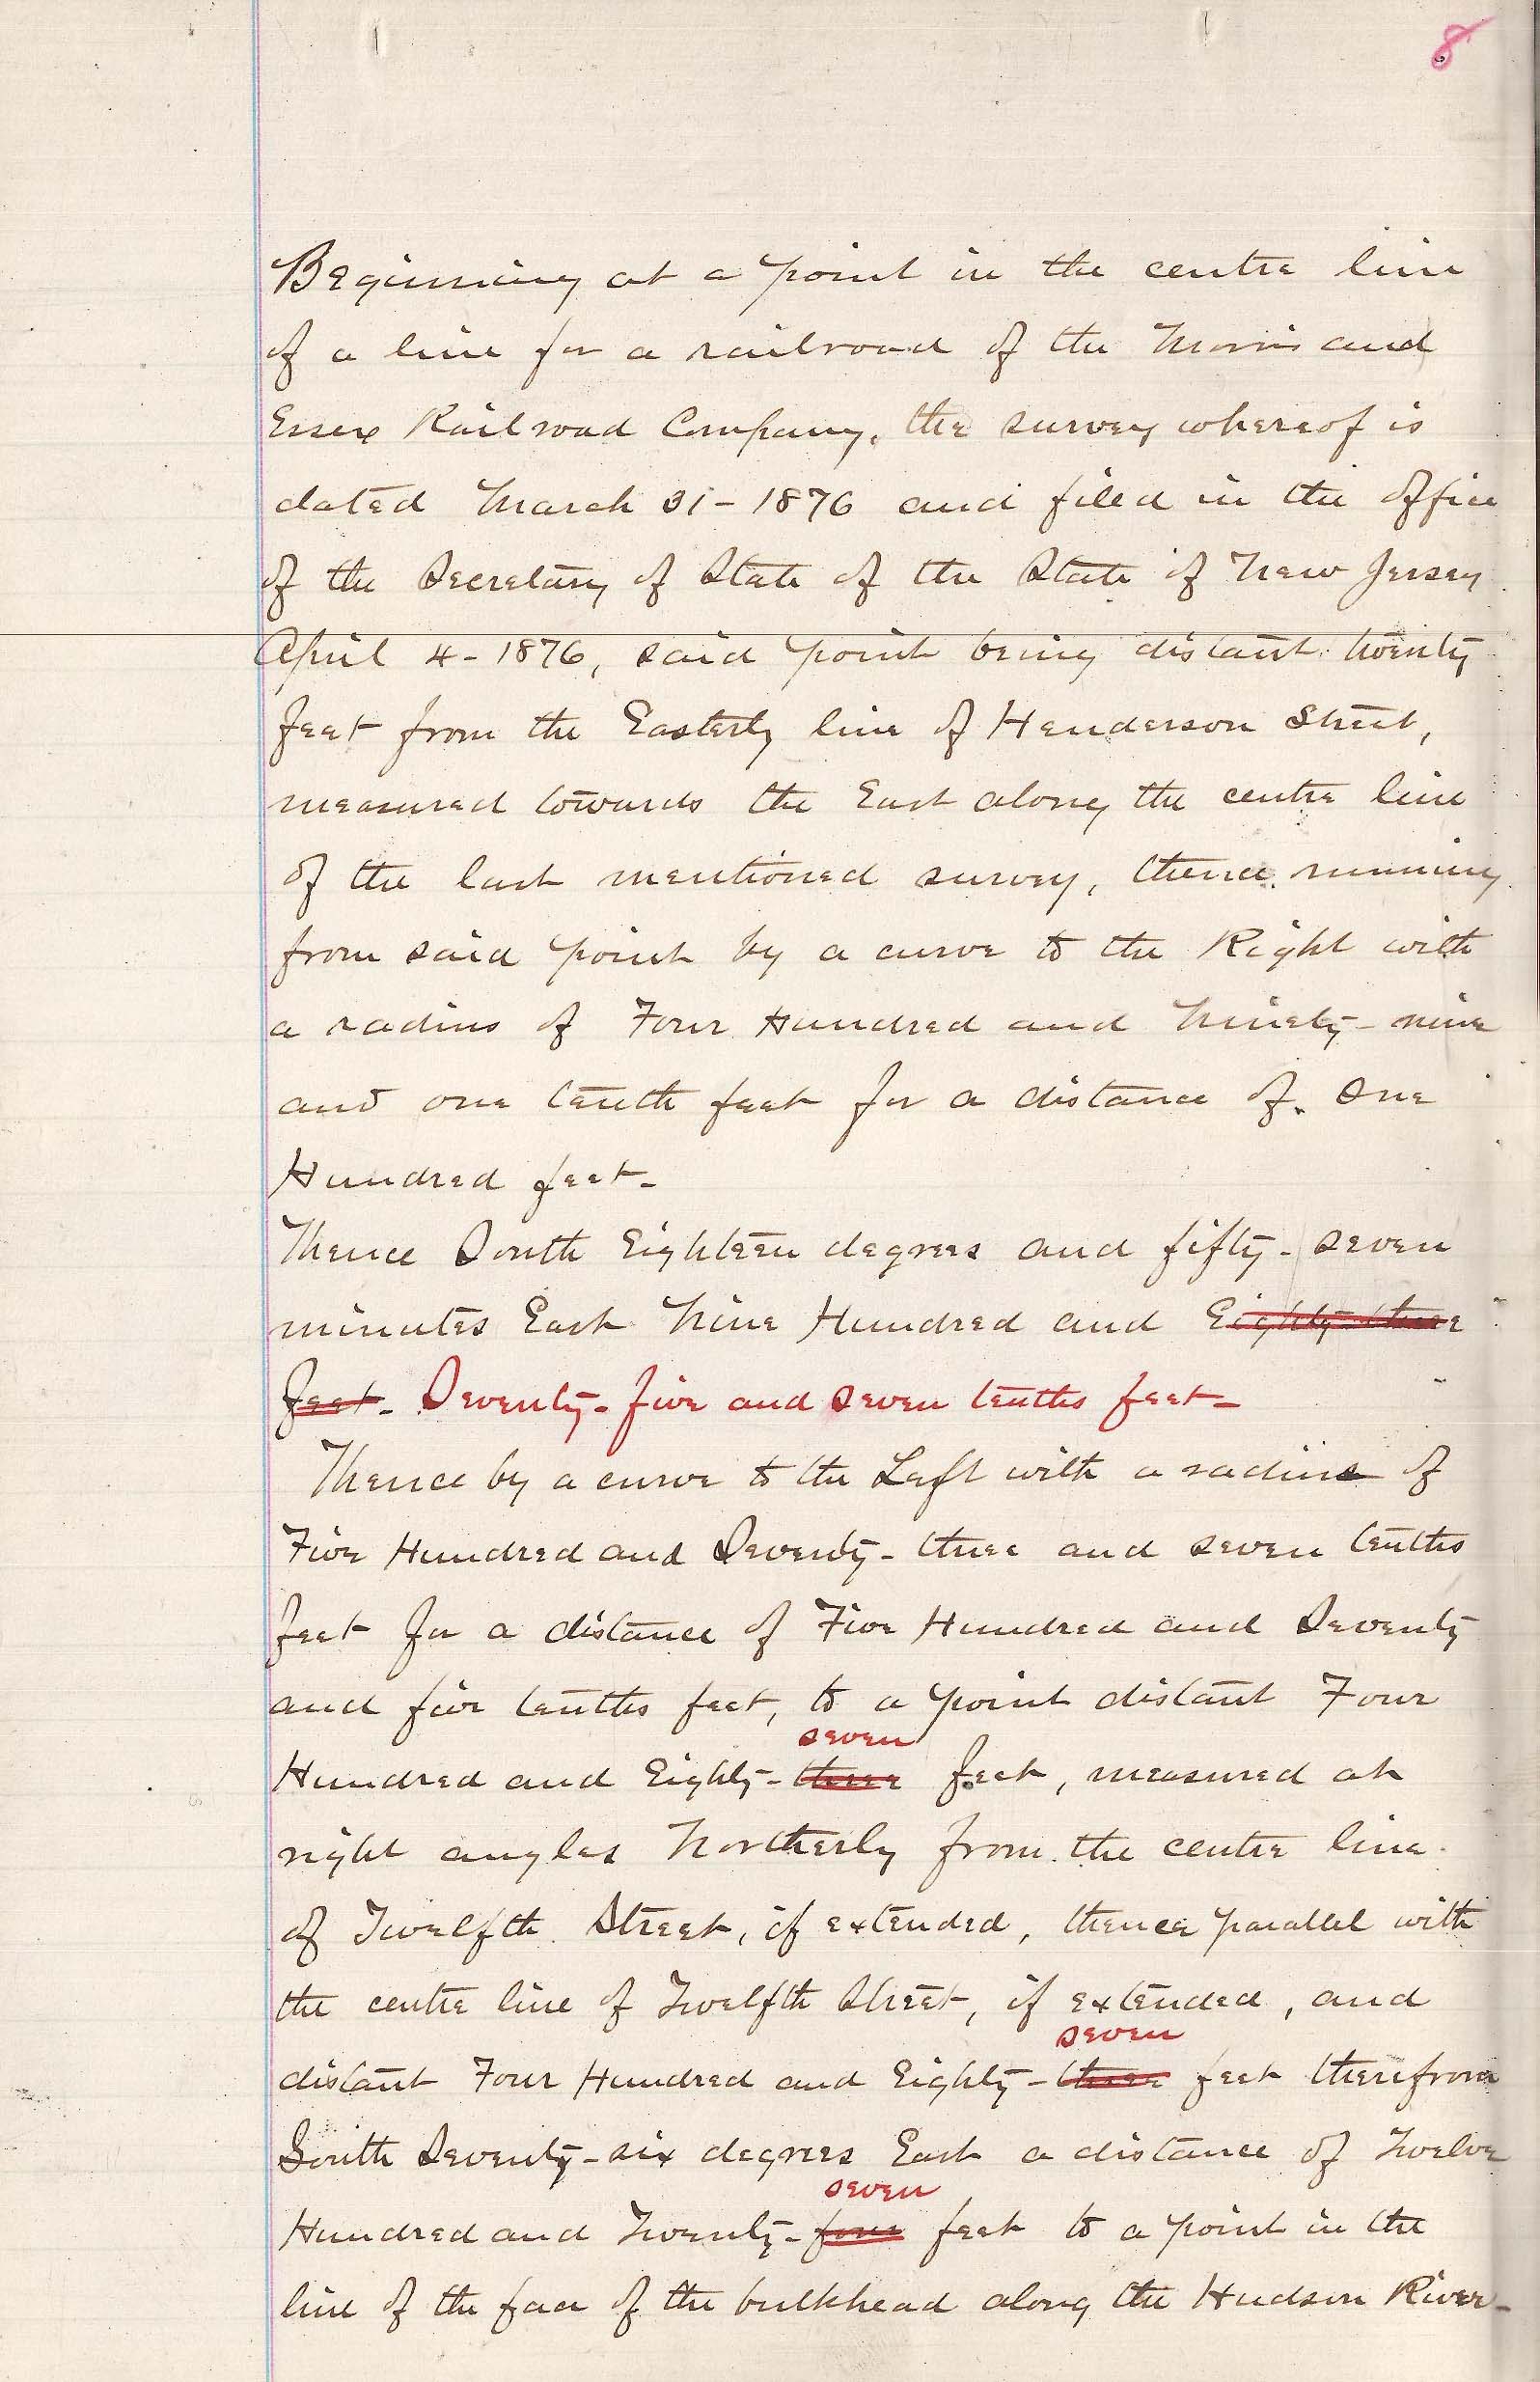 8
Beginning at a point in the centre line
of a line for a railroad of the Morris and
Essex Railroad Company, the survey whereof is
dated March 31 - 1876 and filed in the office
of the Secretary of State of the State of New Jersey
April 4 - 1876, said point being distant twenty
feet from the Easterly line of Henderson Street,
measured towards the East along the centre line
of the last mentioned survey, thence running
from said point by a curve to the Right with
a radius of Four Hundred and Ninety-nine
and one tenth feet for a distance of One
Hundred feet -
Thence South Eighteen degrees and fifty-seven
minutes East Nine Hundred and Eighty-three
feet - Seventy-five and seven tenths feet -
Thence by a curve to the Left with a radius of
Five Hundred and Seventy-three and seven tenths
feet for a distance of Five Hundred and Seventy
and five tenths feet, to a point distant Four
seven
Hundred and Eighty-three feet, measured at
right angles Northerly from the centre line
of Twelfth Street, if extended, thence parallel with
the centre line of Twelfth Street, if extended, and
seven
distant Four Hundred and Eighty-three feet therefrom
South Seventy-six degrees East a distance of Twelve
seven
Hundred and Twenty-four feet to a point in the
line of the face of the bulkhead along the Hudson River -